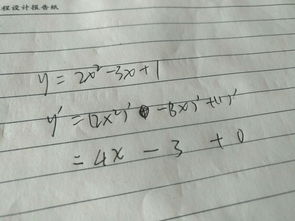 程设计报告纸
y = 2x² - 3x + 1
y' = (2x²)' - (3x)' + (1)'
= 4x - 3 + 0